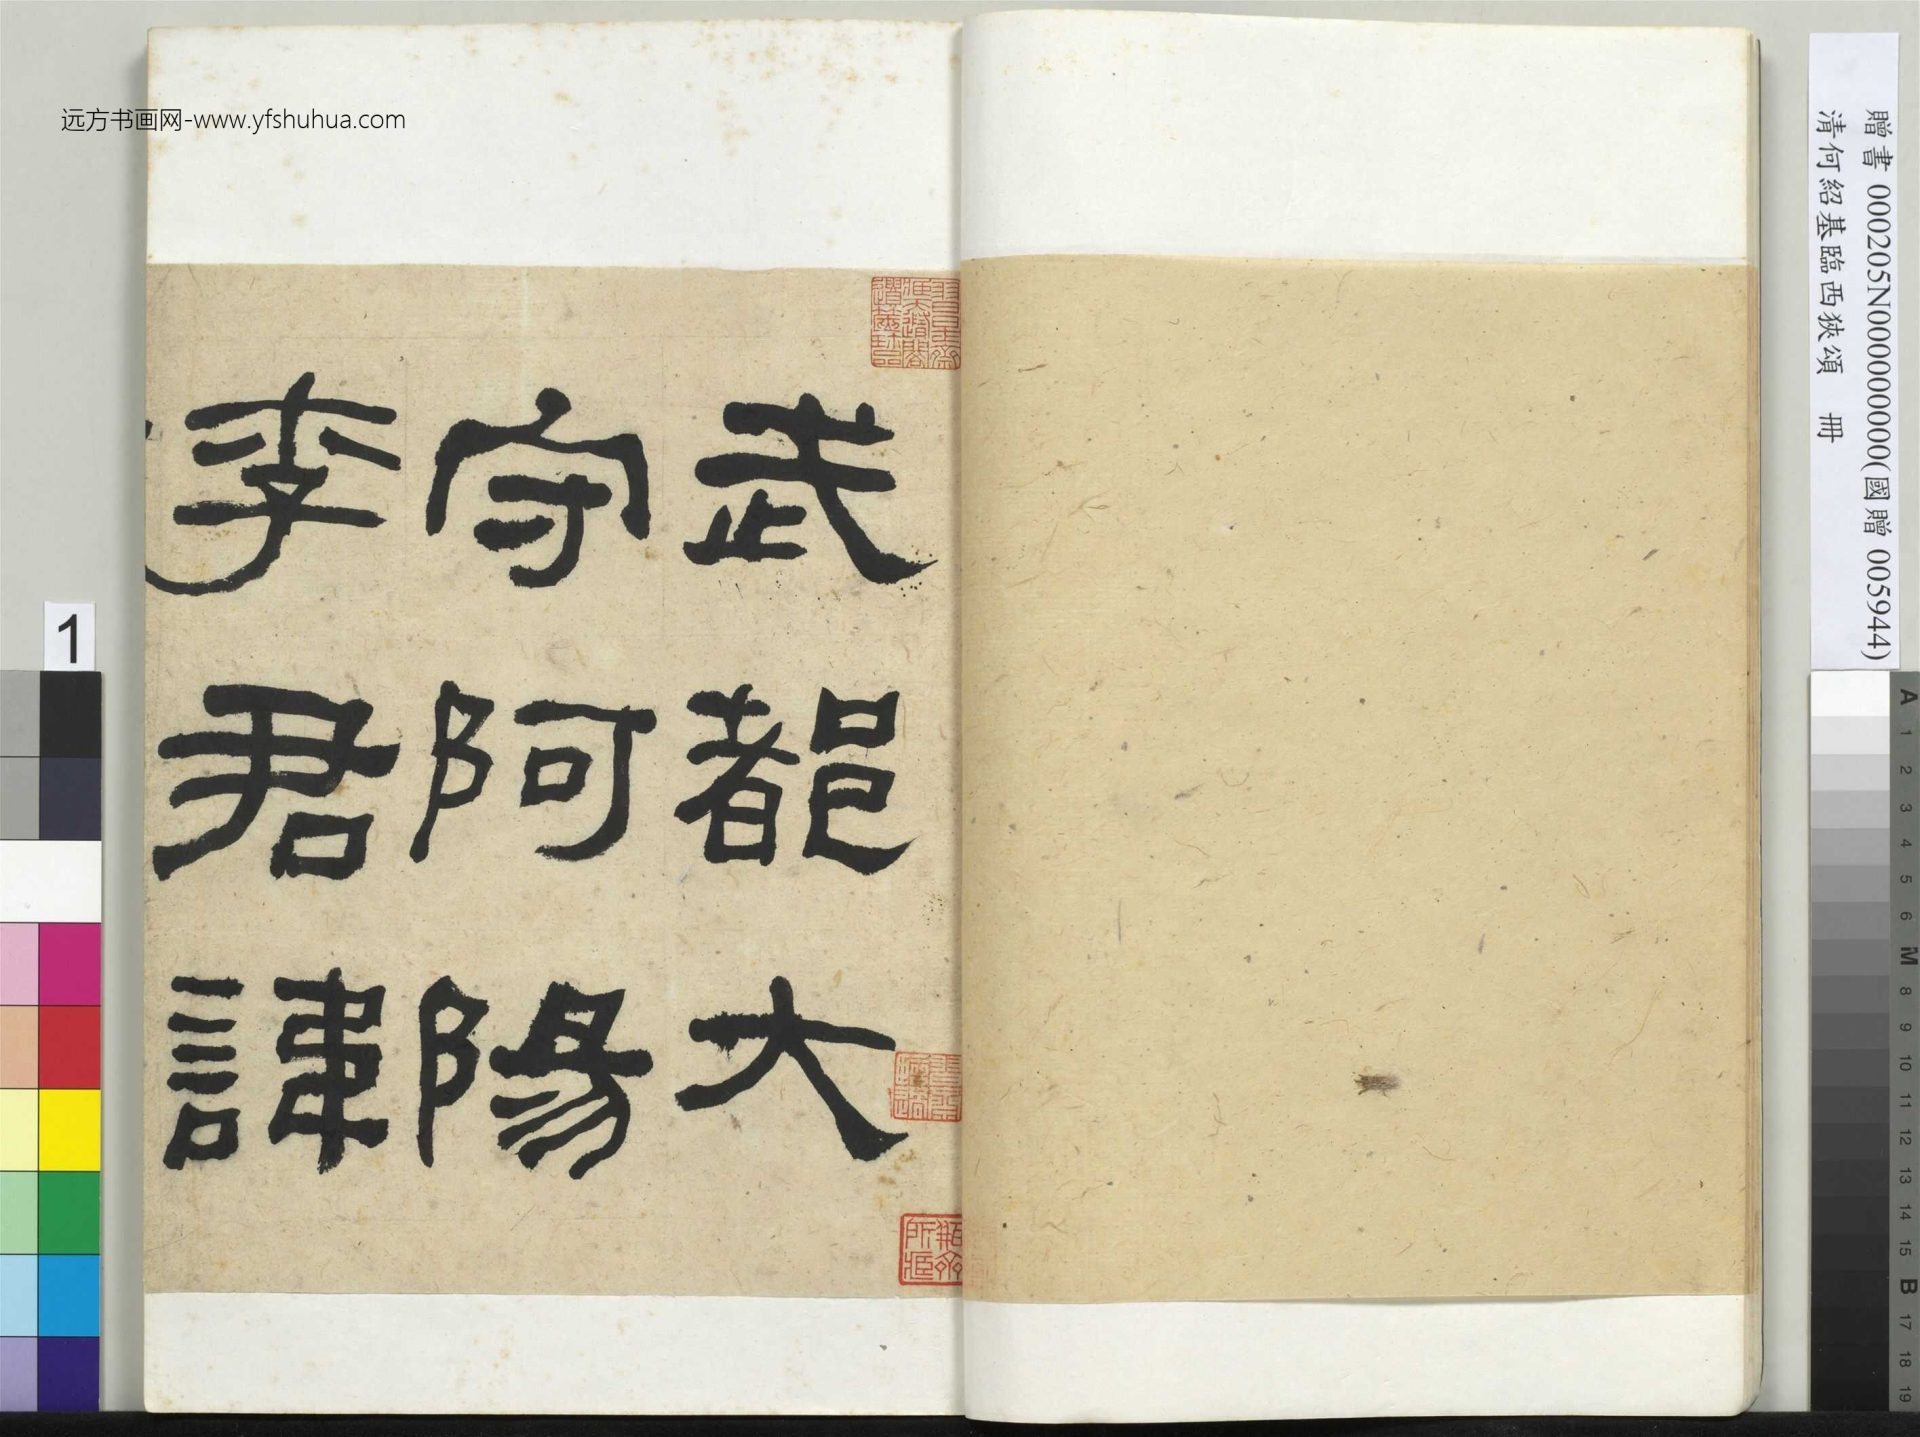 远方书画网-www.yfshuhua.com
贈書 000205N000000000(國贈 005944)
清何紹基臨西狹頌 冊
武都大
守阿陽
李君諱
1
A 1 2 3 4 5 6 M 8 9 10 11 12 13 14 15 B 17 18 19